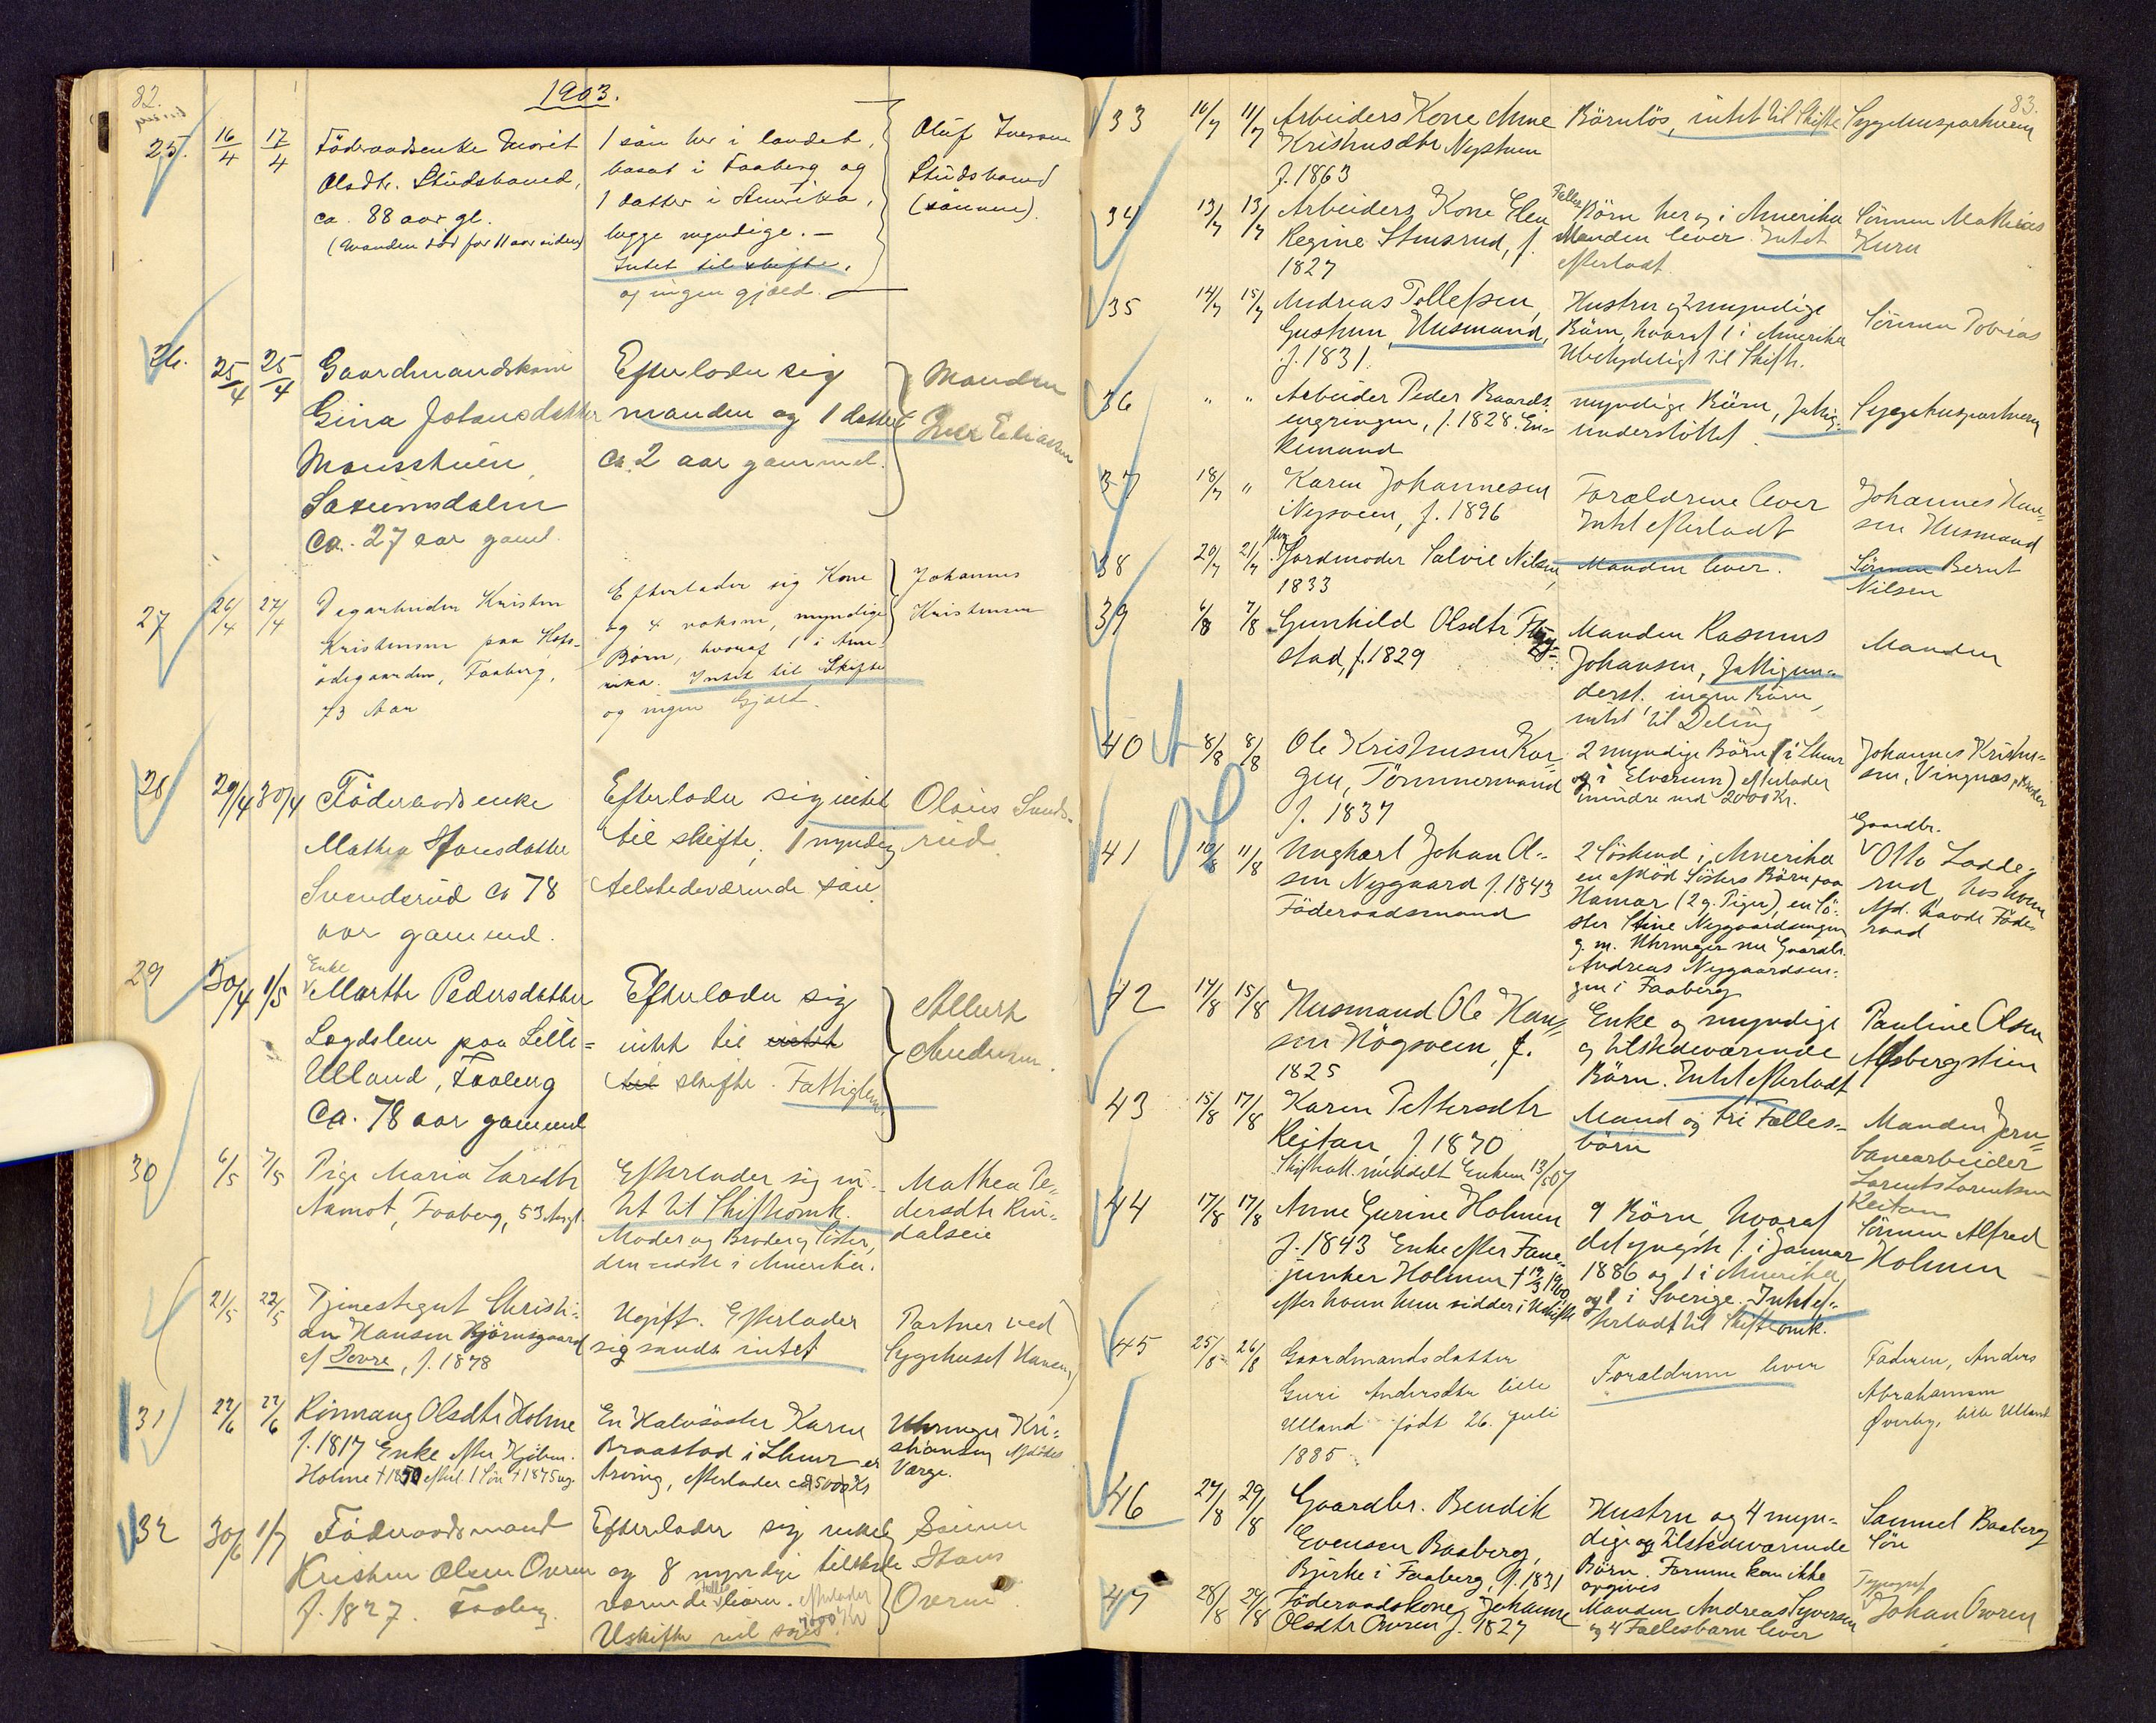 82.
1903.
25. 16/4 17/4 Föderaadsenke Marit
Olsdtr. Studshoued,
ca. 88 aar gl.
(Manden död for 11 aar siden)
1 sön her i landet,
bosat i Faaberg og
1 datter i Amerika,
begge myndige. —
Intet til skifte,
og ingen gjæld.
Oluf Iversen
Studshoued
(sönnen).
26. 25/4 25/4 Gaardmandskone
Gina Johansdatter
Mousstuen
Saxumsdalen
Ca. 27 aar gaml.
Efterlader sig
manden og 1 datter
Ca. 2 aar gammel.
Manden
Iver Eliasen
27 26/4 27/4 Dagarbeider Kristen
Kristensen paa Hofs-
ödegaarden, Faaberg,
73 Aar
Efterlader sig Kone
og 4 voksne, myndige
Börn, hvoraf 1 i Ame-
rika. Intet til Skifte
og ingen Gjæld.
Johannes
Kristensen
28 29/4 30/4 Föderaadsenke
Mathea Hansdatter
Svendsrud Ca 78
aar gammel.
Efterlader sig intet
til skifte, 1 myndig
tilstedeværende sön
Olaus Sunds-
rud
29 30/4 1/5 Enke
Marthe Pedersdatter
Lægdslem paa Lille-
Ulland, Faaberg
Ca. 78 aar gammel
Efterlader sig
intet til intet
til skifte. Fattiglem
Allert
Andersen.
30 6/5 7/5 Pige Maria Larsdtr
Aamot, Faaberg, 53 Aar gl.
Efterlader sig in-
tet til Skifteomk.
Moder og Broder og Söster,
den sidste i Amerika.
Mathea Pe-
dersdtr Rin-
dalseie
21/5 22/5 Tjenestegut Christi-
an Hansen Björnsgaard
af Dovre, f. 1878
Ugift. Efterlader
sig sandt intet
Portner ved
Sygehuset Hansen
31 22/6 22/6 Rönnaug Olsdtr Holme
f. 1817 Enke efter Hjelm.
Holme † 1850 efterl. 1 Sön † 1875 ug.
En Halvsöster Karen
Braastad i Lhmr er
Arving, efterlader ca 2500 Kr
Uhrmager Kri-
stiansen Afdödes
Værge.
32 30/6 1/7 Föderaadsmand
Kristen Olsen Overen
f. 1827. Faaberg
Efterlader sig enke
og 8 myndige tilstede
værende fælles börn. efterlader
2000 Kr
Uskifte vil söges.
Sönnen
Hans
Overen
83.
33 10/7 11/7 Arbeiders Kone Anne
Kristensdtr Nystuen
f. 1863
Börnlös, intet til Skifte
Sygehusportneren
34 13/7 13/7 Arbeiders Kone Elen
Regine Stensrud, f.
1827
Fælles
Börn her og i Amerika
Manden lever. Intet
efterladt.
Sönnen Mathias
Kurn
35 14/7 15/7 Andreas Tollefsen,
Gustuen, Husmand,
f. 1831.
Hustru og 2 myndige
Börn, hvoraf 1 i Amerika
Ubetydeligt til Skifte.
Sönnen Tobias
36 " " Arbeider Peder Baards-
engringen, f. 1828. En-
kemand
myndige Börn, Fattig-
understöttet.
Sygehusportneren
37 18/7 " Karen Johannesen
Nysveen, f. 1896
Forældrene lever
Intet efterladt
Johannes Han-
sen Husmand
38 20/7 21/7 Jordmoder Salvie Nilsen,
1833
Manden lever.
Sönnen Bernt
Nilsen
39 6/8 7/8 Gunhild Olsdtr Flug-
stad, f. 1829
Manden Rasmus
Johansen, Fattigun-
derst. ingen Börn,
intet til Deling
Manden
40 8/8 8/8 Ole Kristensen Kor-
gen, Tömmermand
f. 1837
2 myndige Börn (i Lhmr
og i Elverum) efterlader
mindre end 2000 Kr.
Johannes Kristen-
sen, Vingnæs, Broder
41 10/8 11/8 Ungkarl Johan Ol-
sen Nygaard f. 1843
Föderaadsmand
2 Söskend i Amerika
en afdöd Sösters Börn paa
Hamar (2 g. Piger), en Sö-
ster Stine Nygaardsengen
g. m. Uhrmager nu Gaardbr.
Andreas Nygaardsen-
gen i Faaberg
Gaardbr.
Otto Ladde-
rud, hos hvem
Afd. havde Föde-
raad
42 14/8 15/8 Husmand Ole Han-
sen Högsveen, f.
1825
Enke og myndige
og tilstedeværende
Börn. Intet efterladt
Pauline Olsen
Alfsbergstien
43 15/8 17/8 Karen Pettersdtr
Reitan, f 1870
Skifteatt. meddelt Enkem 13/5 07
Mand og tri Fælles-
börn
Manden Jern-
banearbeider
Lorents Lorentsen
Reitan
44 17/8 17/8 Anne Gurine Holmen
f. 1843 Enke efter Fane-
junker Holmen † 19/3 1900
efter hvem hun sidder i Uskifte
9 Börn, hvoraf
det yngste f. i Januar
1886 og 1 i Amerika,
og 1 i Sverige. Intet ef-
terladt til Skifteomk.
Sönnen Alfred
Holmen
45 25/8 26/8 Gaardmandsdatter
Guri Andersdtr lille
Ulland født 26. juli
1885
Forældrene lever
Faderen, Anders
Abrahamsen
Øverby, lille Ulland
46 27/8 29/8 Gaardbr. Bendik
Evensen Baaberg,
Björke i Faaberg, f. 1831
Hustru og 4 myn-
dige og tilstedeværende
Börn. Formue kan ikke
opgives
Samuel Baaberg
Sön
47 28/8 29/8 Föderaadskone Johanne
Olsdtr Owren f. 1827
Manden Andreas Syversen
og 4 Fællesbarn lever
Typograf
Johan Owren